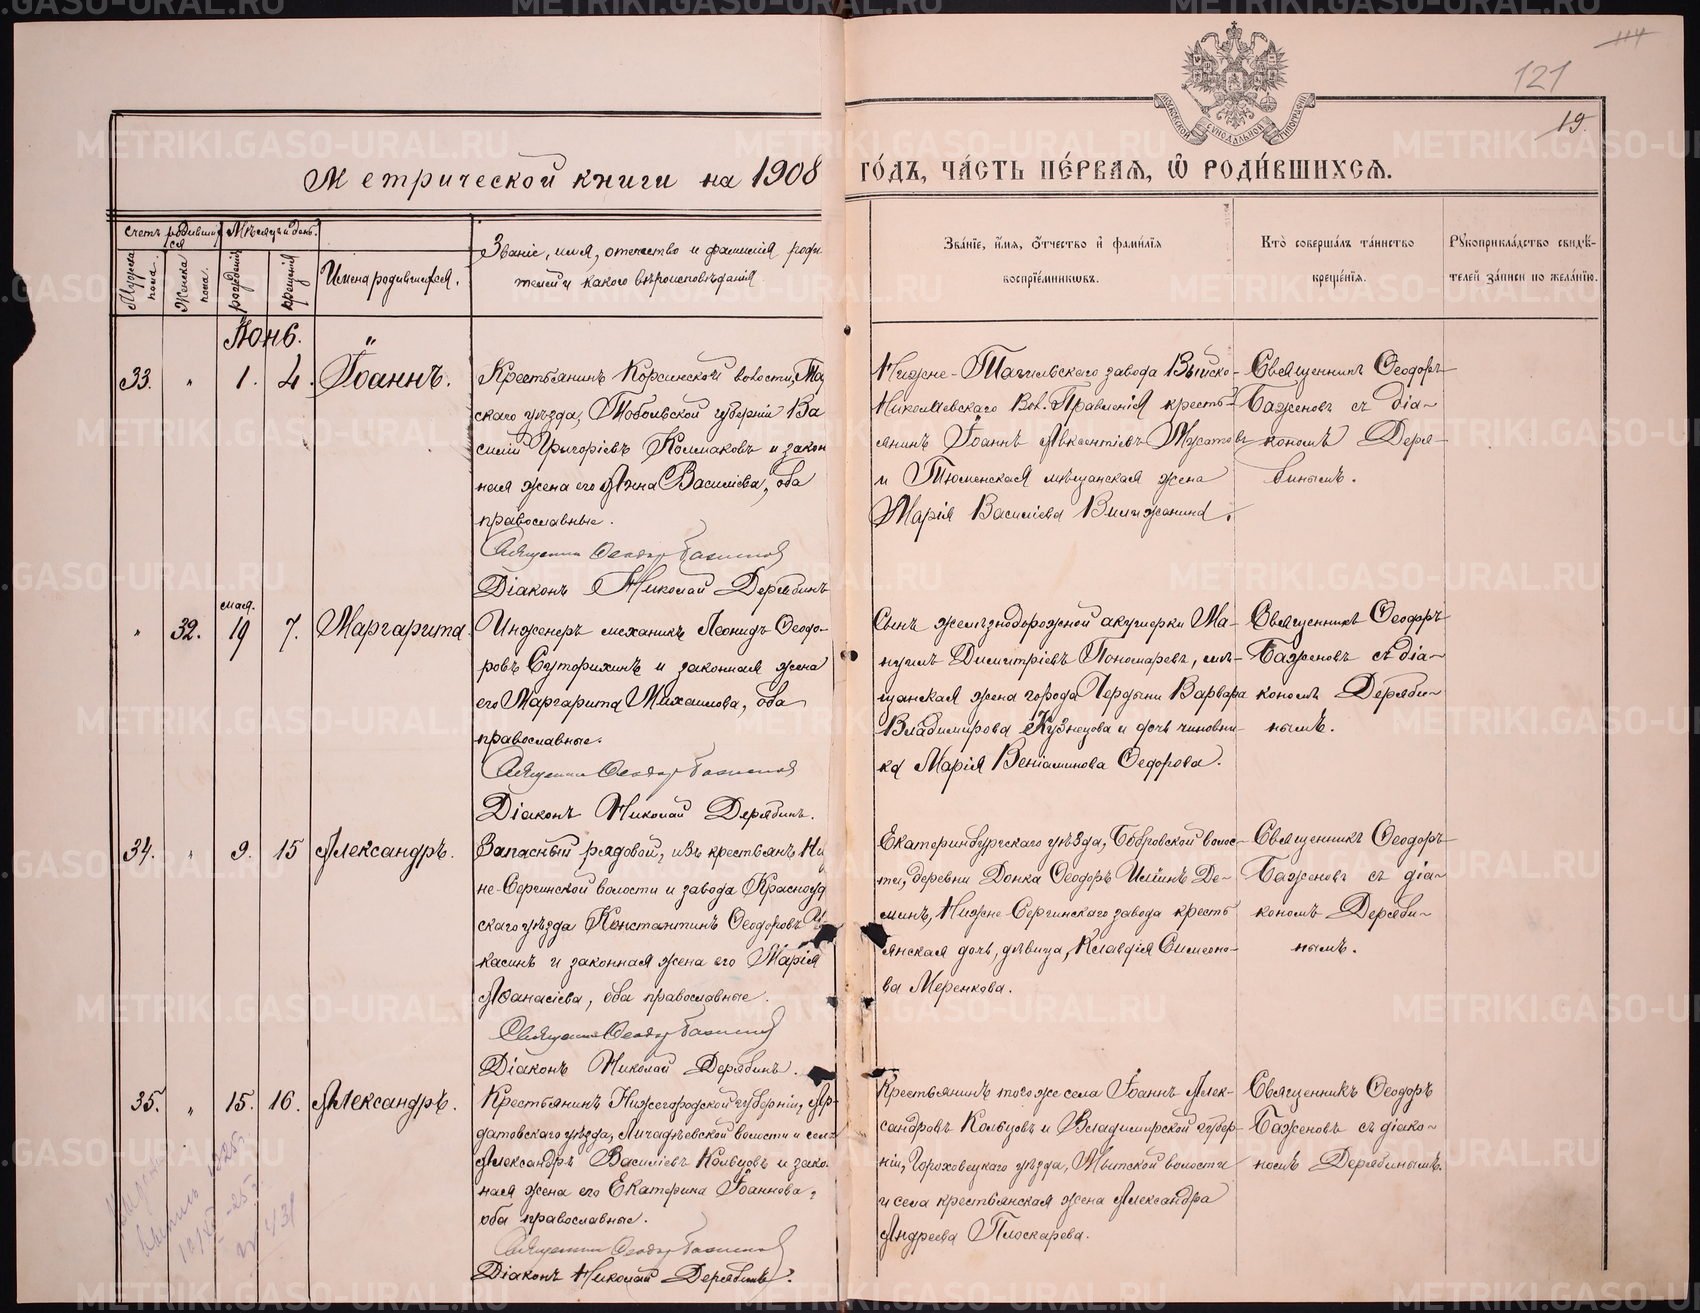 114
121
19.
МОСКОВСКОЙ СѴНОДАЛЬНОЙ ТИПОГРАФІИ
Метрической книги на 1908 го́дъ, ча́сть пе́рваѧ, ѡ҆ роди́вшихсѧ.
Счетъ родившихся
Мѣсяцъ и день.
Мужска пола.
Женска пола.
рожденія
крещенія
Имена родившихся.
Званіе, имя, отчество и фамилія роди-
телей и какого вѣроисповѣданія.
Зва́нїе, и҆́мѧ, ѻ҆́тчество и҆ фами́лїѧ
воспрїе́мниковъ.
Кто̀ соверша́лъ та́инство
креще́нїѧ.
Рꙋкоприкла́дство свидѣ́-
телей за́писи по жела́нїю.
Іюнь.
33. " 1. 4. Іоаннъ.
Крестьянинъ Корсинской волости, Та
скаго уѣзда, Тобольской губерніи Ва
силій Григоріевъ Колмаковъ и закон
ная жена его Анна Васильева, оба
православные.
Священникъ Ѳеодоръ Баженовъ
Діаконъ Николай Дерябинъ
Нижне-Тагильскаго завода Выйско-
Николаевскаго Вол. Правленія кресть-
янинъ Іоаннъ Авксентіевъ
и Тюменская мѣщанская жена
Марія Васильева Вилижанина.
Священникъ Ѳеодоръ
Баженовъ съ діа-
кономъ Деря-
бинымъ.
" 32. мая. 19 7. Маргарита
Инженеръ механикъ Леонидъ Ѳеодо-
ровъ Суторихинъ и законная жена
его Маргарита Михаилова, оба
православные.
Священникъ Ѳеодоръ Баженовъ
Діаконъ Николай Дерябинъ.
Сынъ желѣзнодорожной акушерки Ма-
нуилъ Димитріевъ Пономаревъ, мѣ-
щанская жена города Чердыни Варвара
Владимирова Кузнецова и дочь чиновни-
ка Марія Веніаминова Ѳедорова.
Священникъ Ѳеодоръ
Баженовъ съ діа-
кономъ Деряби-
нымъ.
34. " 9. 15 Александръ.
Запасный рядовой, изъ крестьянъ Ни
не-Сергинской волости и завода Красноуф
скаго уѣзда Константинъ Ѳеодоровъ
касинъ и законная жена его Марія
Аѳанасіева, оба православные.
Священникъ Ѳеодоръ Баженовъ
Діаконъ Николай Дерябинъ.
Екатеринбургскаго уѣзда, Бобровской волос-
ти, деревни Ѳеодоръ Ильинъ Де-
минъ, Нижне-Сергинскаго завода кресть
янская дочь, дѣвица, Клавдія Симеоно-
ва Меренкова.
Священникъ Ѳеодоръ
Баженовъ съ діа-
кономъ Деряби-
нымъ.
35. " 15. 16. Александръ.
Крестьянинъ Нижегородской губерніи, Ар-
датовскаго уѣзда, Личадѣевской волости и села
Александръ Васильевъ Кольцовъ и зако
нная жена его Екатерина Іоаннова,
оба православные.
Священникъ Ѳеодоръ Баженовъ
Діаконъ Николай Дерябинъ.
Крестьянинъ того же села Іоаннъ Алек-
сандровъ Кольцовъ и Владимирской губер-
ніи, Гороховецкаго уѣзда, Мытской волости
и села крестьянская жена Александра
Андреева Плоскарева.
Священникъ Ѳеодоръ
Баженовъ съ діако-
номъ Дерябинымъ.
METRIKI.GASO-URAL.RU